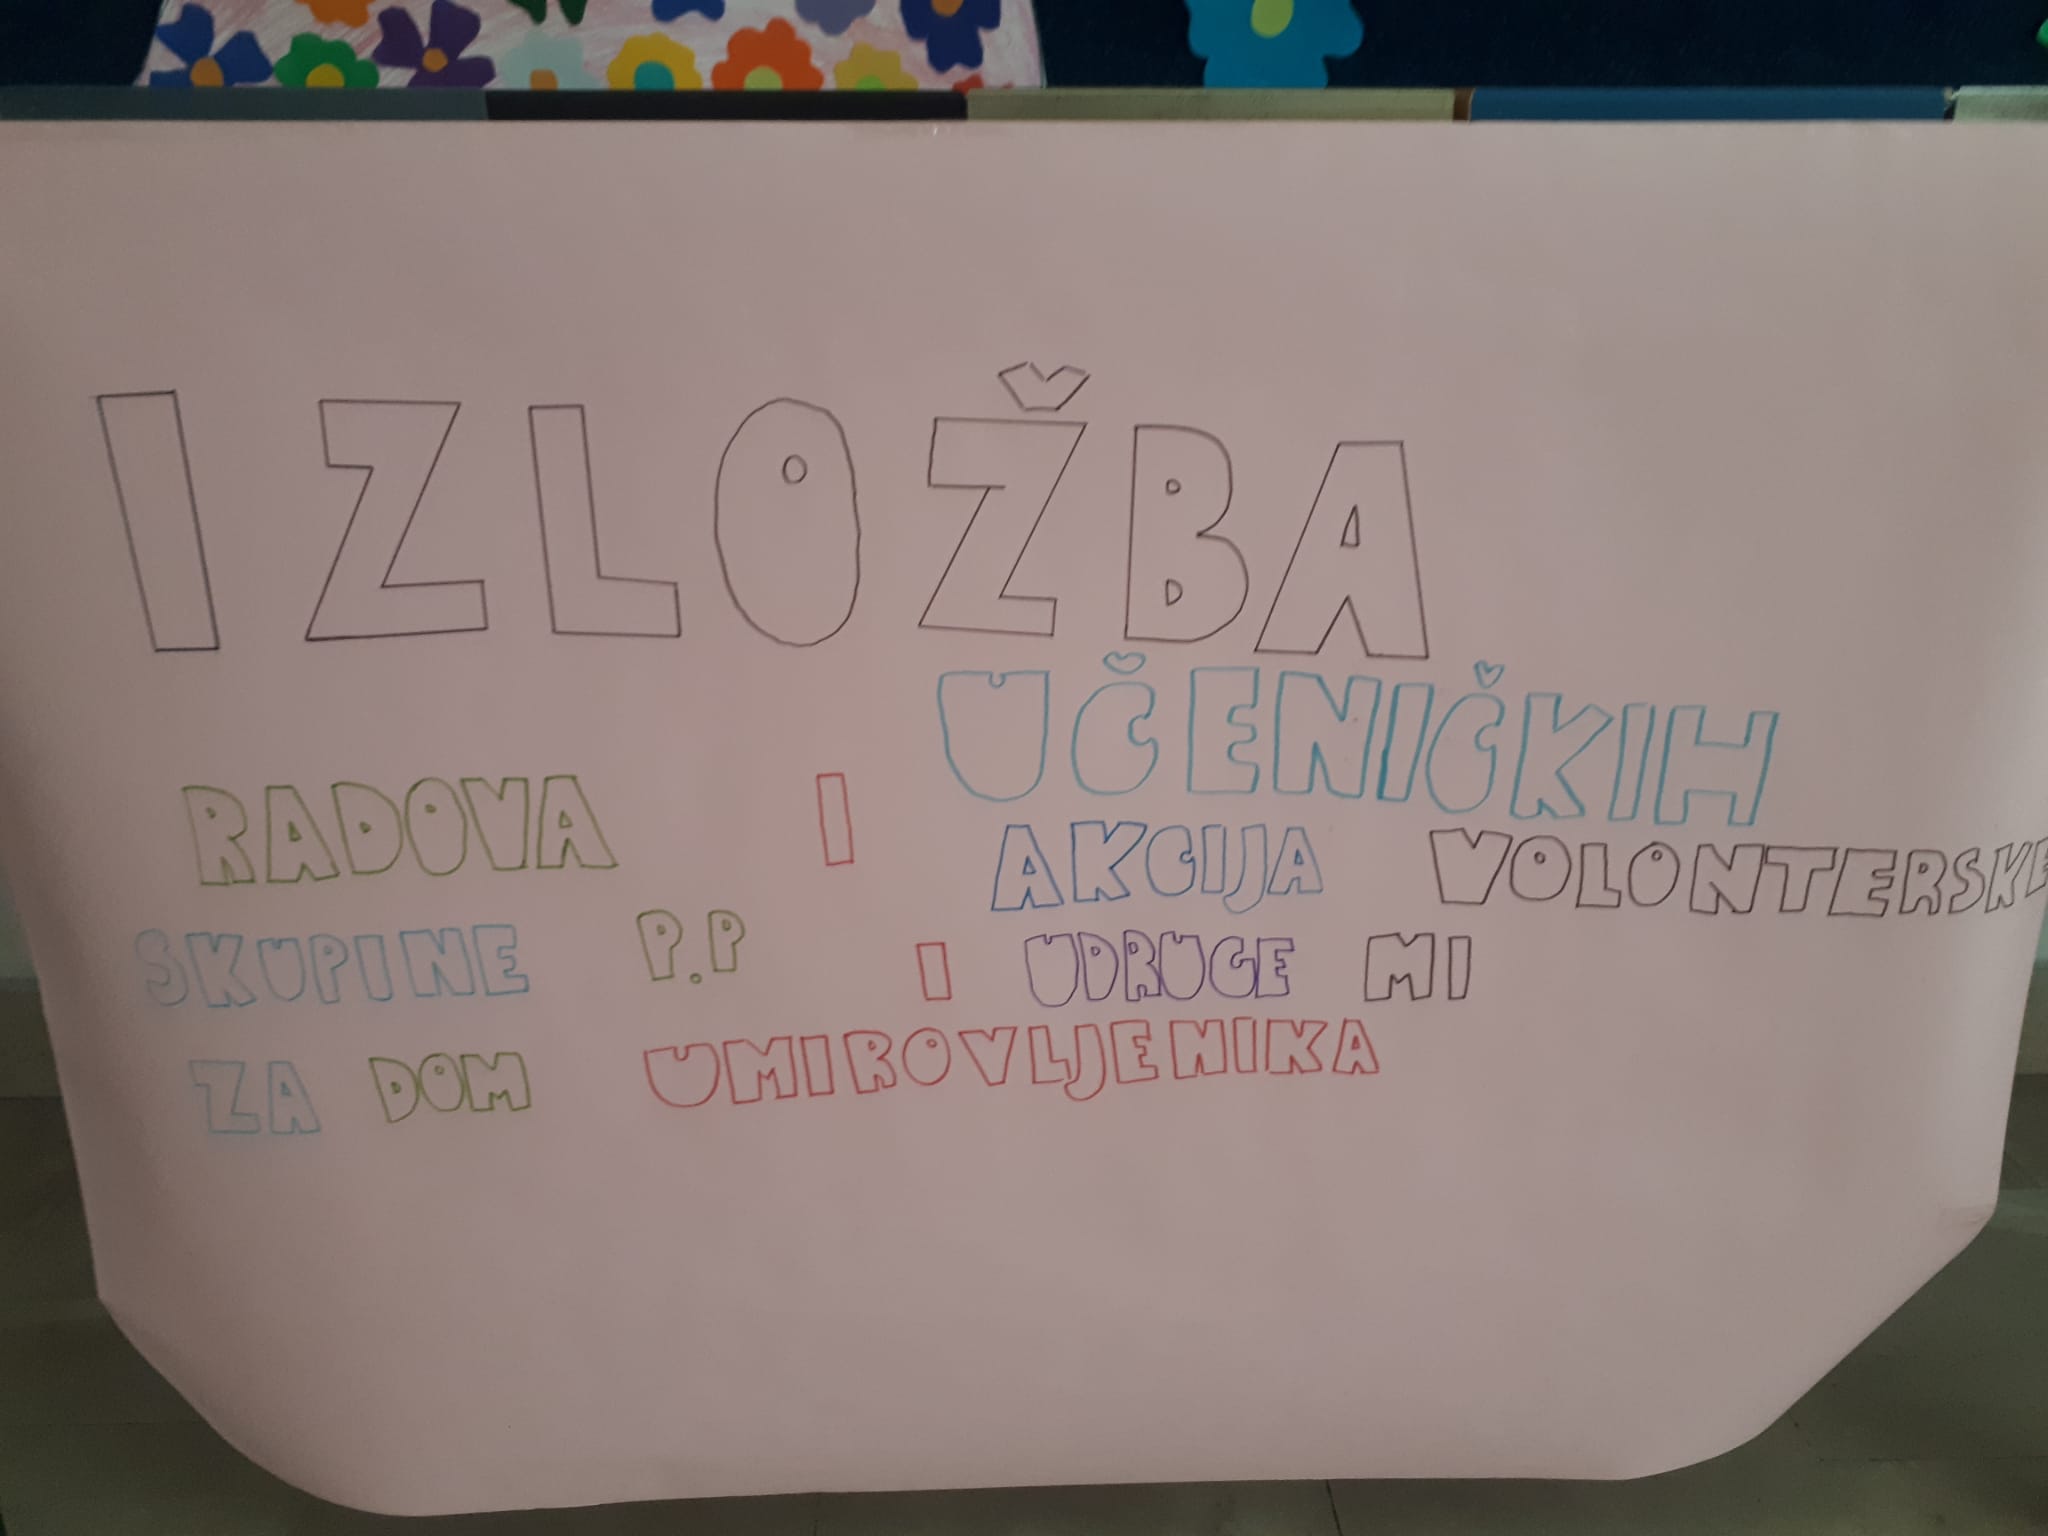 IZLOŽBA
UČENIČKIH
RADOVA I AKCIJA VOLONTERSKE
SKUPINE P.P I UDRUGE MI
ZA DOM UMIROVLJENIKA